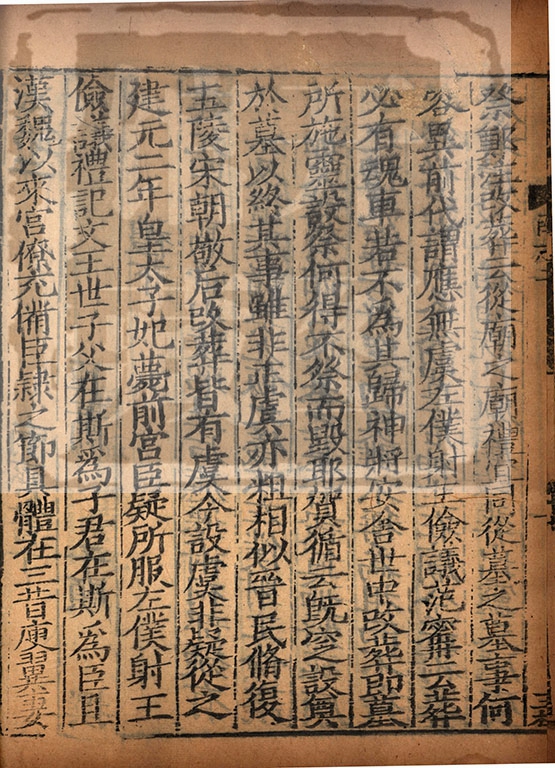 祭鄭注改葬云從廟之廟禮宜同從墓之墓事何
容異前代謂應無虞左僕射王儉議范甯云葬
必有魂車若不為其歸神將安舍世中改葬即墓
所施靈設祭何得不祭而毀耶賀循云既窆設奠
於墓以終其事雖非正虞亦粗相似晉民脩復
五陵宋朝敬后改葬皆有虞今設虞非疑從之
建元二年皇太子妃薨前宮臣疑所服左僕射王
儉議禮記文王世子父在斯為子君在斯為臣且
漢魏以來宮僚充備臣隸之節具體在三昔庾翼妻